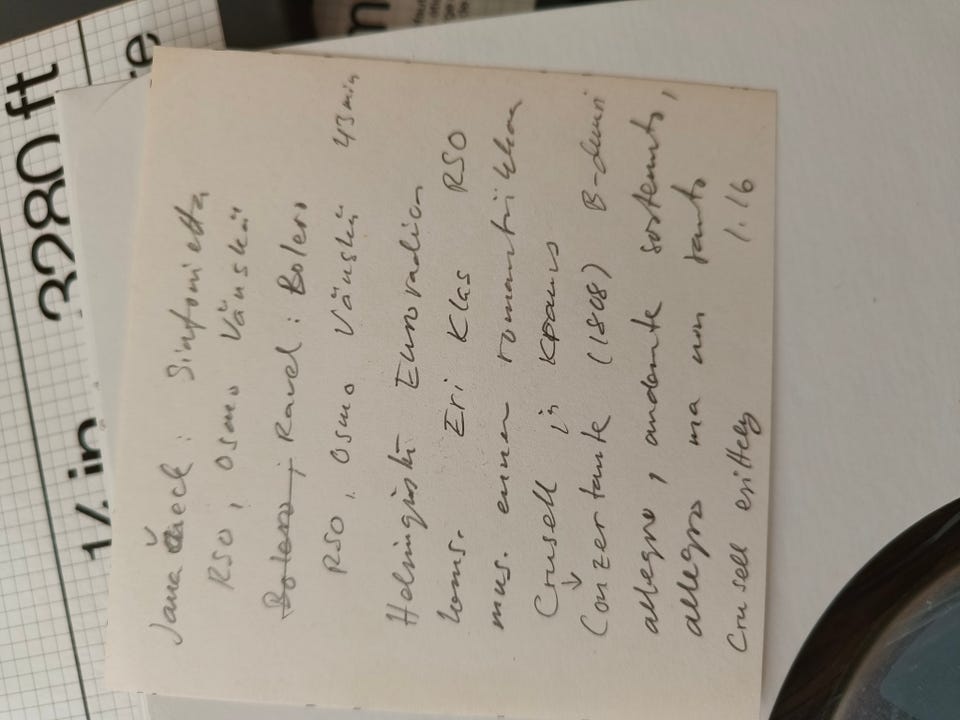 Janáček: Sinfonietta
RSO, Osmo Vänskä
Bolero; Ravel: Bolero
RSO, Osmo Vänskä 43 min
Helsingistä Euroradion
kons. Eri Klas RSO
mus. ennen romantiikkaa
Crusell ja Kraus
Conzertante (1808) B-duuri
allegro, andante sostenuto,
allegro ma non tanto
Crusell esittely 1.16
3280 ft
1/4 in